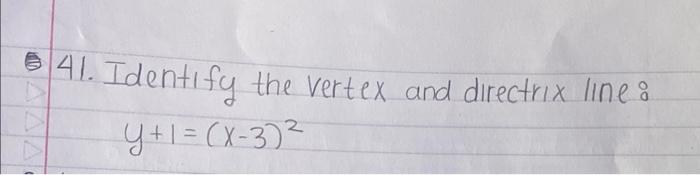 41. Identify the vertex and directrix line:
y+1=(x-3)²